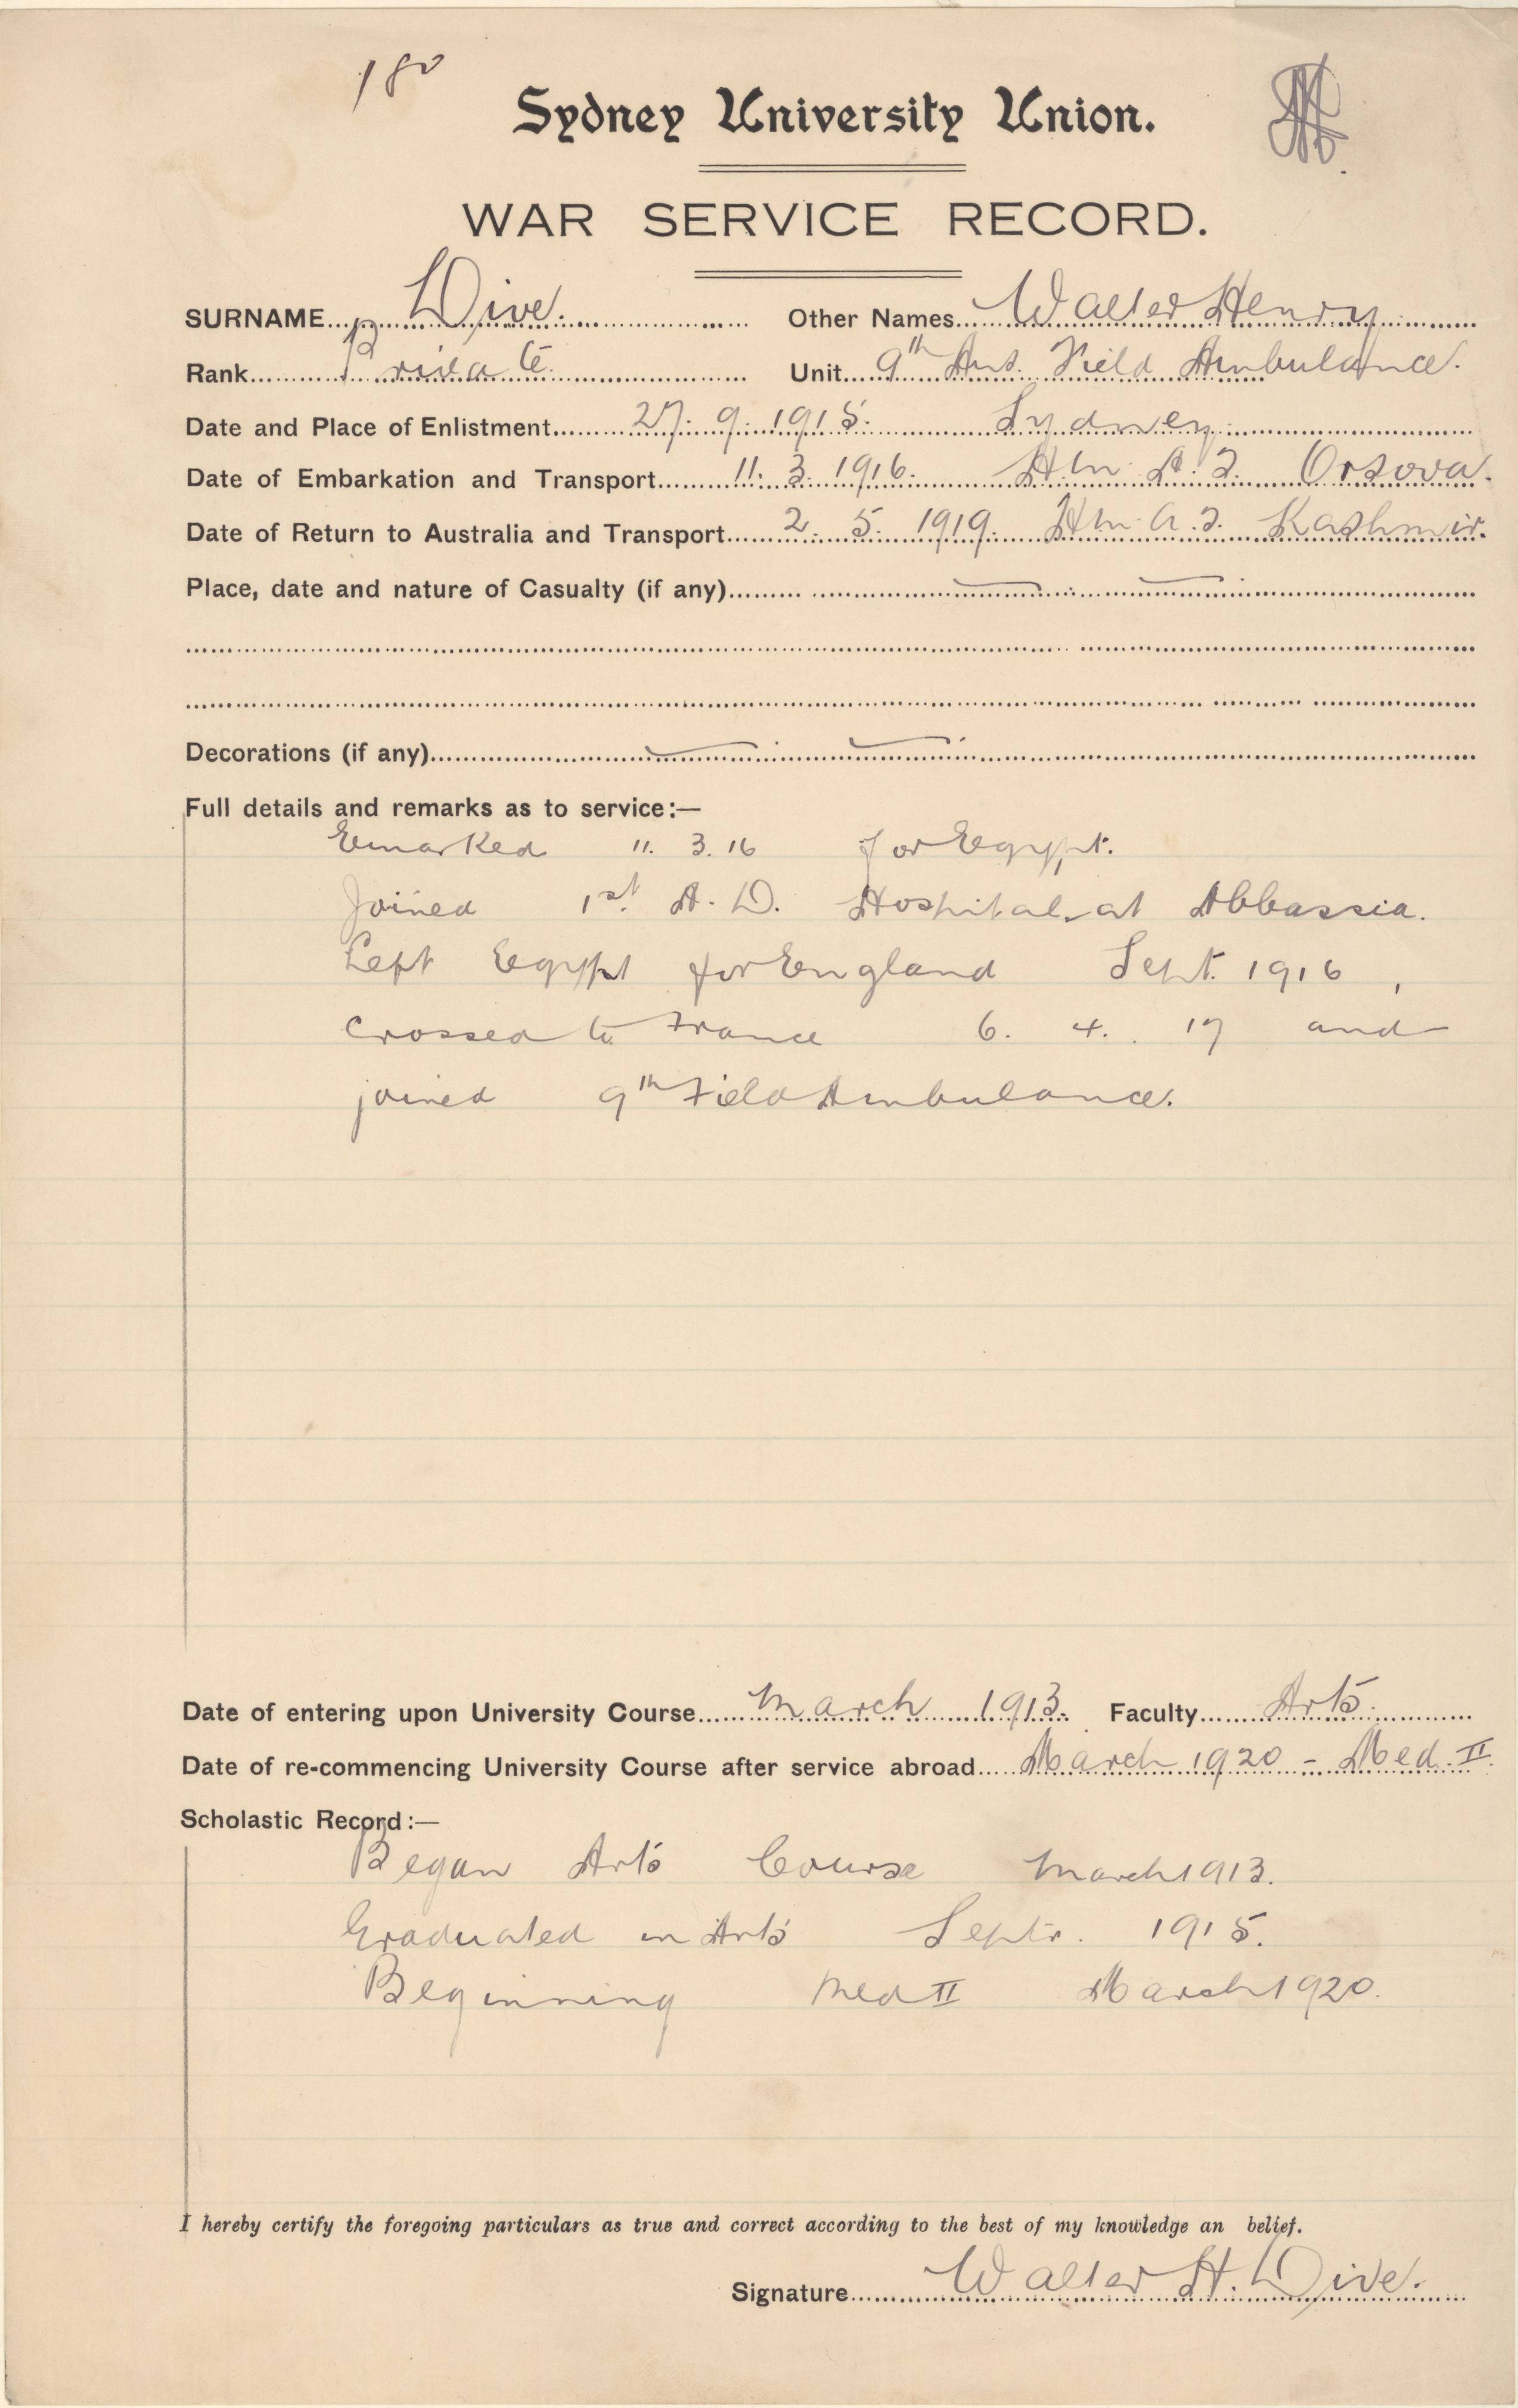 180
Sydney University Union.
WAR SERVICE RECORD.
SURNAME Dive. Other Names Walter Henry
Rank Private Unit 9th Aus. Field Ambulance.
Date and Place of Enlistment 27. 9. 1915. Sydney.
Date of Embarkation and Transport 11. 3. 1916. Hm. A. S. Orsova.
Date of Return to Australia and Transport 2. 5. 1919. Hm. A. S. Kashmir.
Place, date and nature of Casualty (if any)
Decorations (if any)
Full details and remarks as to service:—
Emarked 11. 3. 16 for Egypt.
Joined 1st A. D. Hospital at Abbassia.
Left Egypt for England Sept. 1916,
crossed to France 6. 4. 17 and
joined 9th Field Ambulance.
Date of entering upon University Course March 1913. Faculty Arts.
Date of re-commencing University Course after service abroad March 1920 - Med. II.
Scholastic Record:—
Began Arts Course March 1913.
Graduated in Arts Septr. 1915.
Beginning Med II March 1920.
I hereby certify the foregoing particulars as true and correct according to the best of my knowledge an belief.
Signature Walter H. Dive.